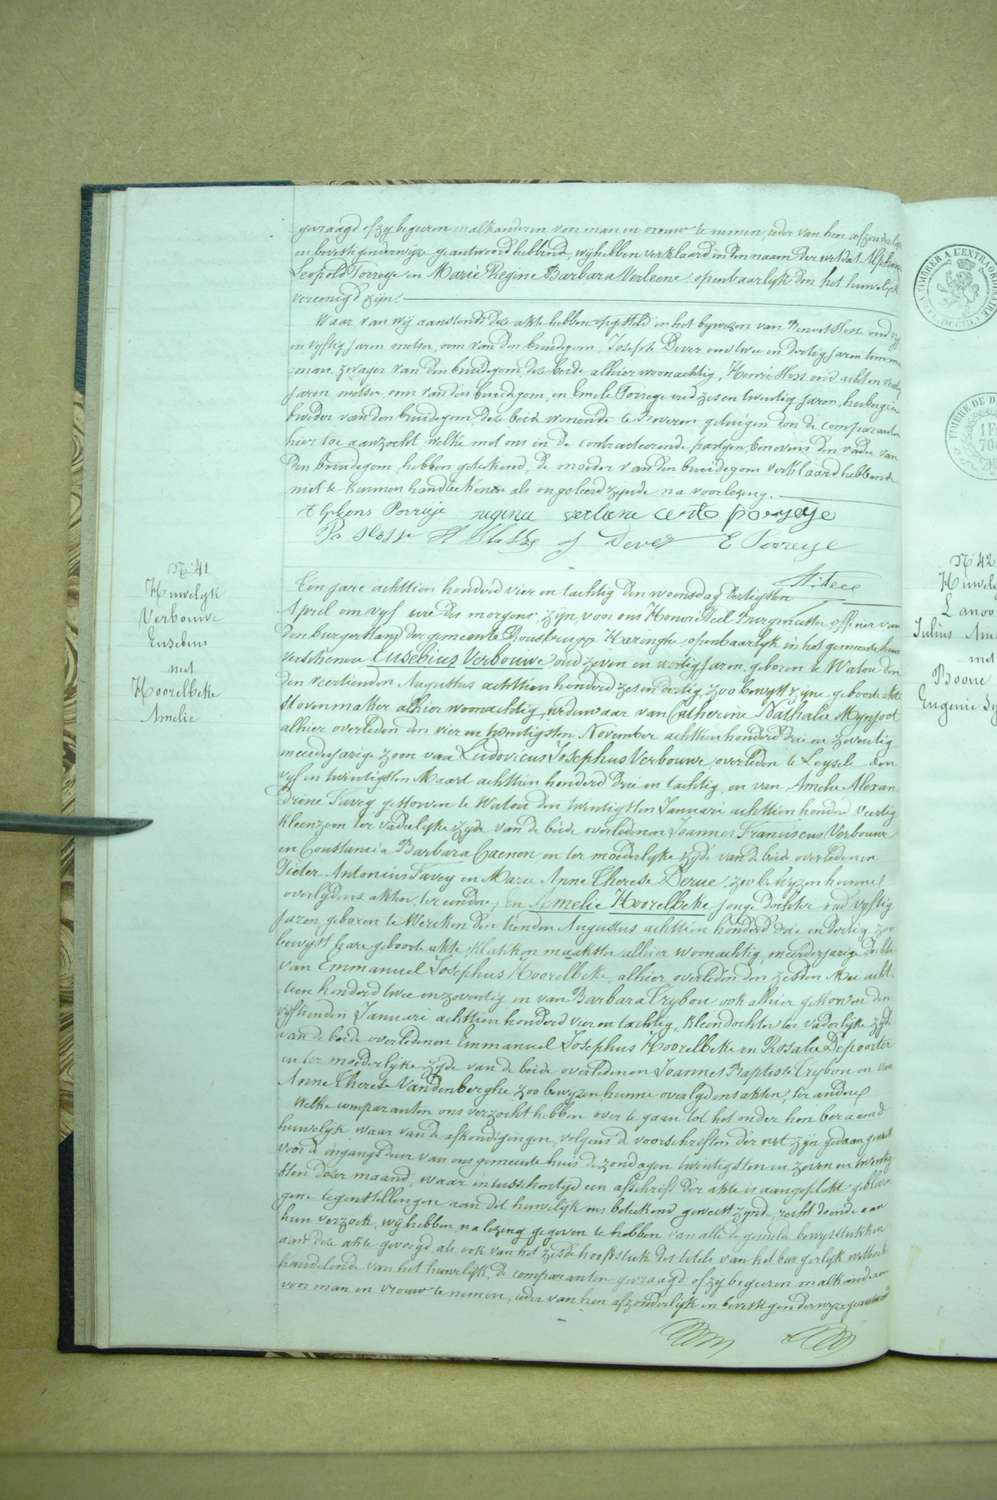 gevraagd of zij begeeren malkanderen voor man en vrouw te nemen, ieder van hen afzonderlijk
en bevestigenderwijze geantwoord hebbende, wij hebben verklaard in den naam der wet dat Alphons
Leopold Porreye en Marie Regine Barbara Verleene openbaarlijk door het huwelijk
vereenigd zijn.
Waar van wij aanstonds deze akte hebben opgesteld in het bywezen van
en vyftig jaren metser, oom van den bruidegom, Joseph Dever oud twee en dertig jaren timmer
man, zwager van den bruidegom, de beide alhier woonachtig, Henri oud acht en
jaren metser, oom van den bruidegom, en Emile Porreye oud zes en twintig jaren, herbergier
broeder van den bruidegom, de beide wonende te Beveren, getuigen door de comparanten
hier toe aanzocht, welke met ons en de contracteerende partyen, benevens den vader van
den bruidegom hebben geteekend, de moeder van den bruidegom verklaard hebbende
niet te kunnen handteekenen als ongeleerd zynde na voorlezing.
Alphons Porreije regina verleene porreije
J Dever E Porreye
H. Teel
N: 41
Huwelyk
Verbouwe
Eusebius
met
Hoorelbeke
Amelie
Een jare achttien honderd vier en tachtig den woensdag dertigsten
April om vyf ure des morgens, zijn voor ons Honoré Teel Burgmeester officier van
den burgerstand der gemeente Rousbrugge Haringhe openbaarlyk in het gemeentehuis
verschenen Eusebius Verbouwe oud zeven en veertig jaren, geboren te Watou den
den veertienden Augustus achttien honderd zes en dertig, zoo bewyst zyne geboorte akte
stovenmaker alhier woonachtig, weduwaar van Catherine Nathalie Mynsoot
alhier overleden den vier en twintigsten November achttien honderd drie en zeventig
meerderjarige zoon van Ludovicus Josephus Verbouwe overleden te Leysele den
vyf en twintigsten Maart achttien honderd drie en tachtig en van Amelie Alexan
drine Favey gestorven te Watou den twintigsten Januari achttien honderd veertig
kleenzoon ter vaderlyke zyde van de beide overledenen Joannes Franciscus Verbouwe
en Constancia Barbara Caenen, en ter moederlyke zyde van de beide overledenen
Pieter Antonius Favey en Marie Anne Therese Derue, zoo bewyzen hunne
overlydens akten, ter eendre; en Amelie Hoorelbeke jonge dochter oud vyftig
jaren, geboren te Wercken den tienden Augustus achttien honderd drie en dertig, zoo
bewyst hare geboorte akte, alhier woonachtig, meerderjarige dochter
van Emmanuel Josephus Hoorelbeke, alhier overleden den zesden Mei acht
tien honderd twee en zeventig en van Barbara Trybou ook alhier gestorven den
vyftienden Januari achttien honderd vier en tachtig, kleendochter ter vaderlyke zyde
van de beide overledenen Emmanuel Josephus Hoorelbeke en Rosalie Depoorter
en ter moederlyke zyde van de beide overledenen Joannes Baptiste Trybou en van
Anne Therese Vandenberghe zoo bewyzen hunne overlydens akten, ter andere
Welke comparanten ons verzocht hebben over te gaan tot het onder hen beraamd
huwelyk, waar van de afkondigingen, volgens de voorschriften der wet zyn gedaan geweest
voor d'ingangsdeur van ons gemeente huis de zondagen twintigsten en zeven en twintig
sten dezer maand, waar intusschentyd een afschrift der akte is aangeplakt gebleven
geene tegenstellingen aan dit huwelyk ons beteekend geweest zynde, recht doende aan
hun verzoek, wij hebben na lezing gegeven te hebben van alle de gemelde bewysstukken
aan deze akte gevoegd, als ook van het zesde hoofdstuk des titels van het burgerlyk wetboek
handelende van het huwelyk, de comparanten gevraagd of zy begeeren malkanderen
voor man en vrouw te nemen, ieder van hen afzonderlyk en bevestigenderwyze geantwoord
N: 42
Huwel
Lanoo
Julius
met
Boone
Eugenie